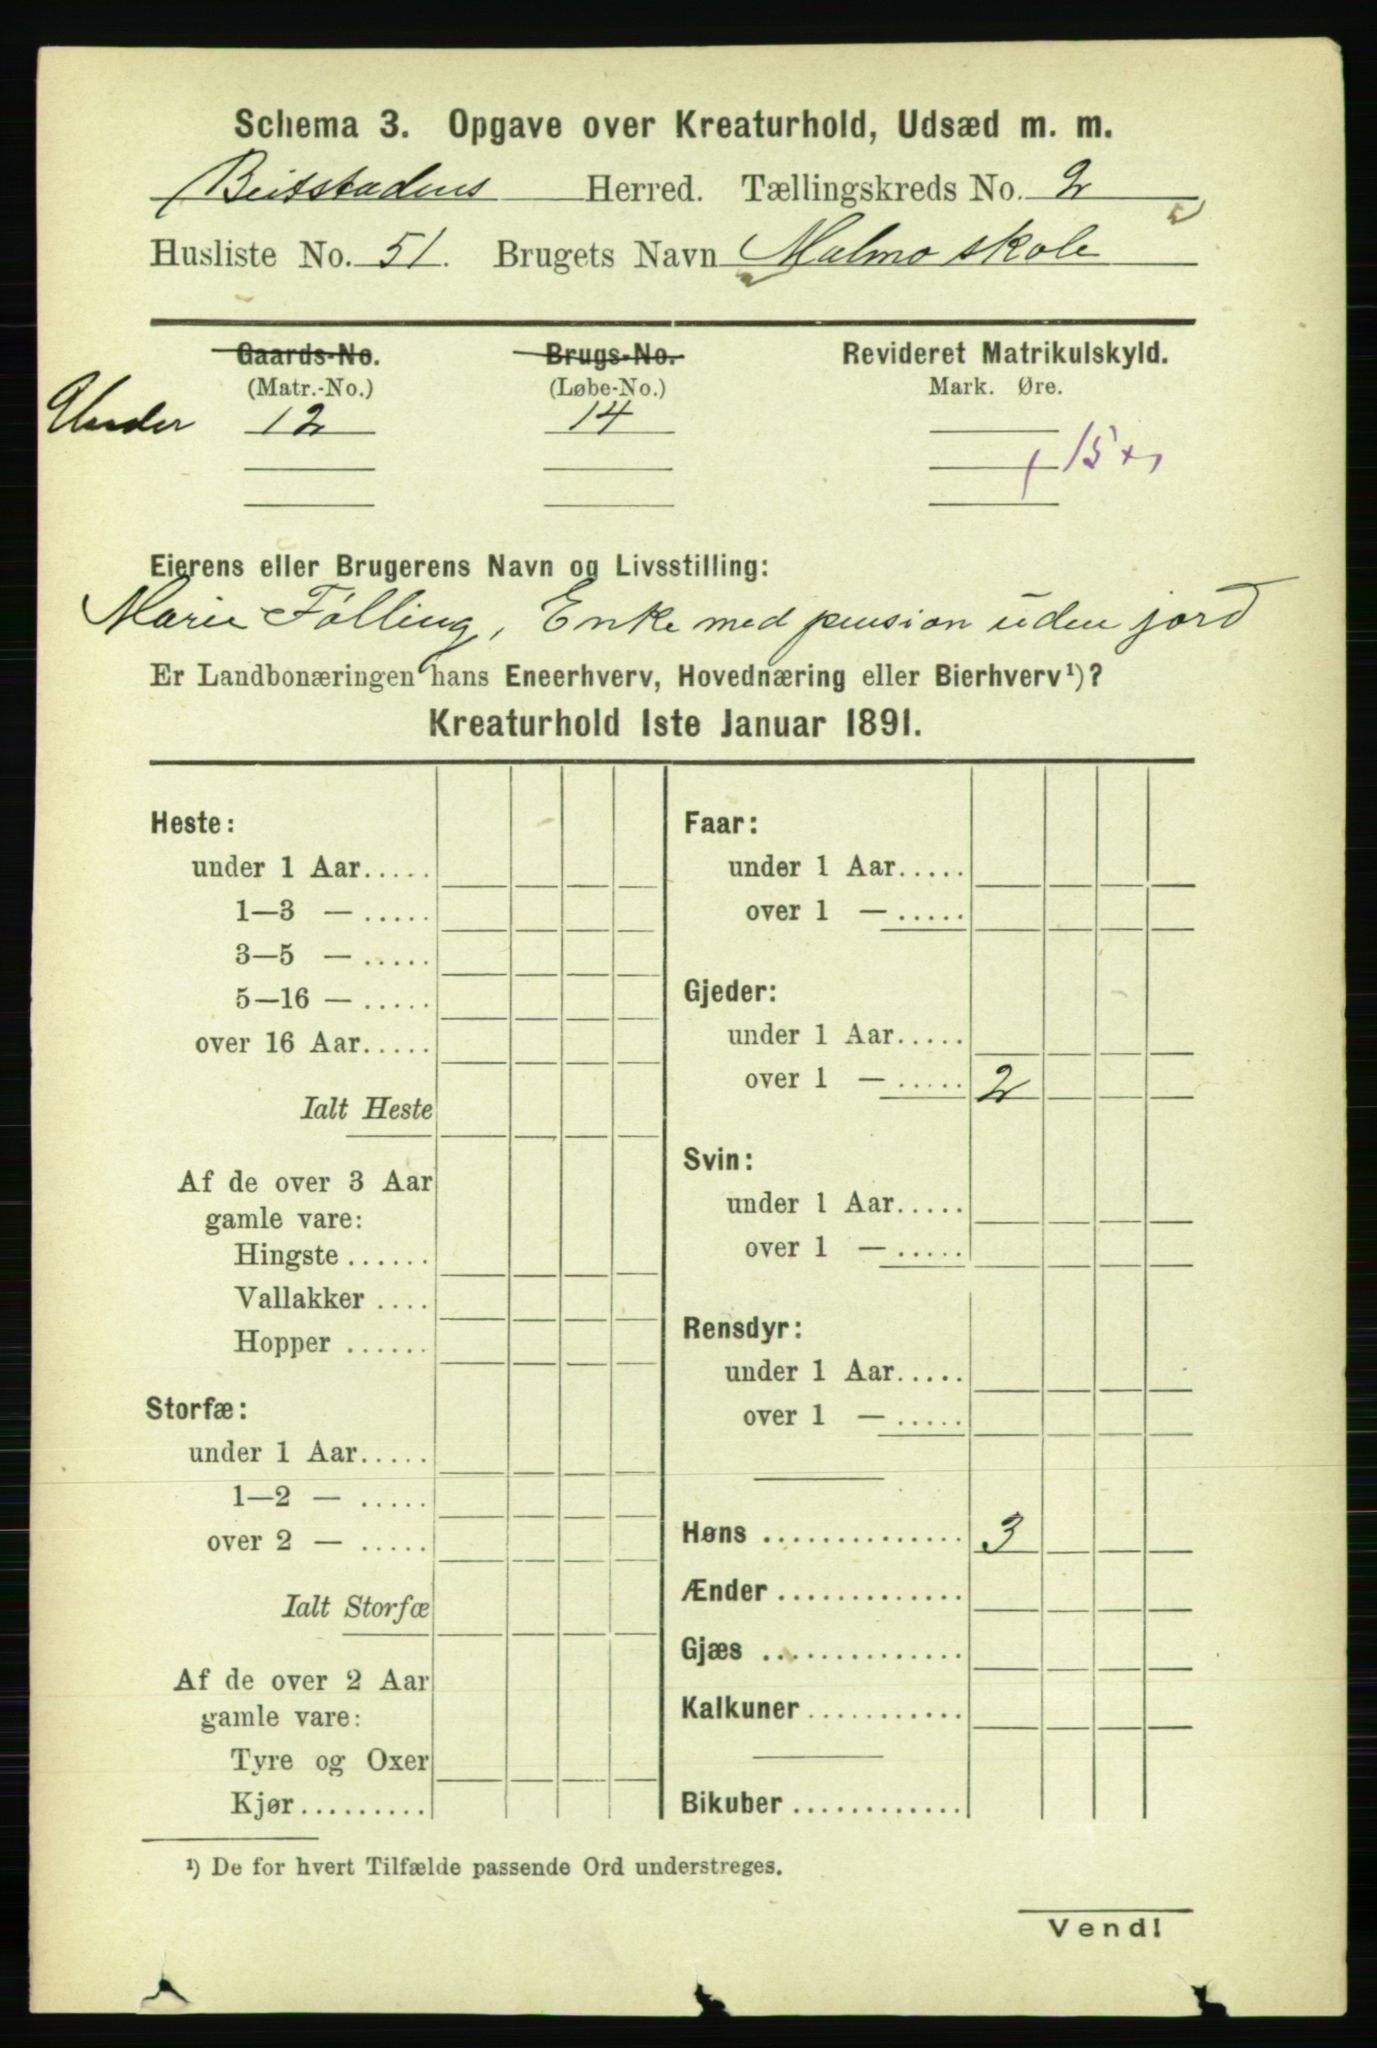 Schema 3. Opgave over Kreaturhold, Udsæd m. m.
Beitstadens Herred. Tællingskreds No. 2
Husliste No. 51. Brugets Navn Malmo skole
Gaards-No. Brugs-No. Revideret Matrikulskyld.
(Matr.-No.) (Løbe-No.) Mark. Øre.
Under 12 14
15
Eierens eller Brugerens Navn og Livsstilling:
Marie Følling, Enke med pension uden jord
Er Landbonæringen hans Eneerhverv, Hovednæring eller Bierhverv¹)?
Kreaturhold 1ste Januar 1891.
Heste:
under 1 Aar.....
1—3 — .....
3—5 — .....
5—16 — .....
over 16 Aar.....
Ialt Heste
Af de over 3 Aar
gamle vare:
Hingste ......
Vallakker ....
Hopper ......
Storfæ:
under 1 Aar.....
1—2 — .....
over 2 — .....
Ialt Storfæ
Af de over 2 Aar
gamle vare:
Tyre og Oxer
Kjør.........
Faar:
under 1 Aar.....
over 1 — .....
Gjeder:
under 1 Aar.....
over 1 — ..... 2
Svin:
under 1 Aar.....
over 1 — .....
Rensdyr:
under 1 Aar.....
over 1 — .....
Høns .............. 3
Ænder .............
Gjæs ..............
Kalkuner ...........
Bikuber ............
¹) De for hvert Tilfælde passende Ord understreges.
Vend!